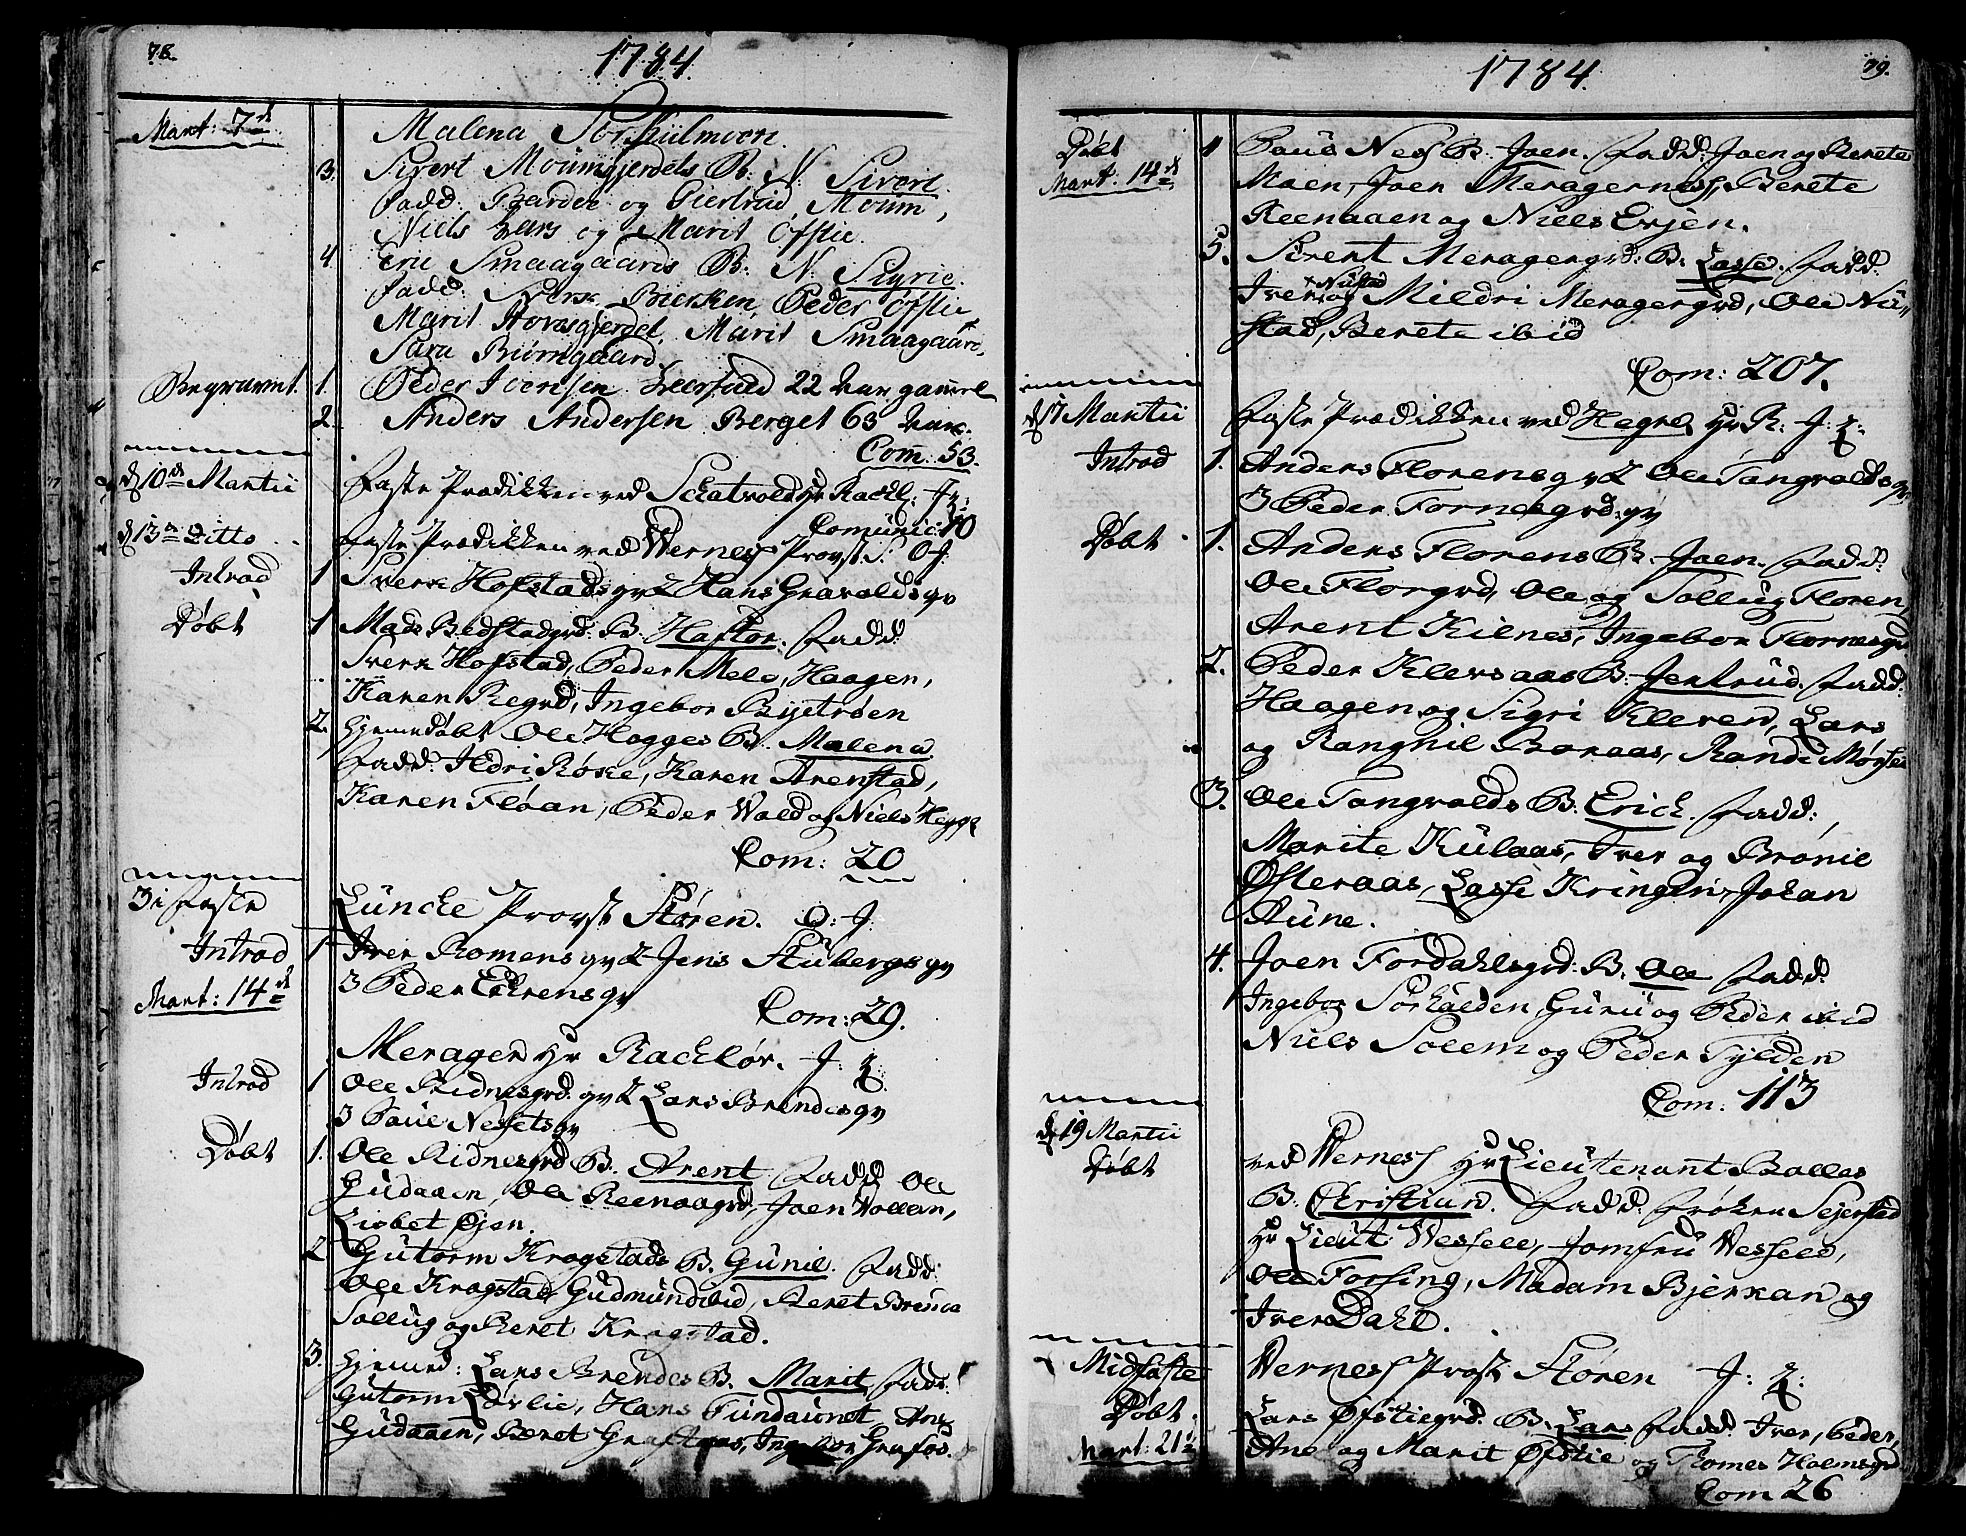 78.
1784.
Mart: 7de
Malena Torkiilmoen.
3. Sivert Moumsgjerdets B: N: Sivert.
Fadd: Bardoe og Giertrud Moum,
Niels Lars og Marit Øfstie.
4. Eric Smaagaards B: N: Sigrie.
Fadd: Sverk Bierken, Peder Øfstie,
Marit Hovsgjerdet, Marit Smaagaard,
Sara Biørngaard.
Begravet. 1. Peder Iversen Leerfald 22 Aar gammel
2. Anders Andersen Berget 63 Aar.
Com: 53.
d 10de Martii Faste Prædikken ved Schatvold Hr Rachl: J:
Comunic: 10
d 13de ditto Faste Prædikken ved Wernes Provst S. O J.
Introd 1 Sverk Hofstads qv 2 Hans Gravolds qv
Døbt 1 Mads Bedstadgrd: B. Haftor. Fadd:
Sverk Hofstad, Peder Mele, Haagen,
Karen Regrd, Ingebor Byetrøen
2. Hjemedøbt Ole Hogges B. Malena
Fadd: Ildri Røske, Karen Arenstad,
Karen Floan, Peder Wold og Niels Hegge
Com: 20
3 i Faste Luncke Provst Støren. O: J.
Introd 1 Iver Romens qv 2 Jens Stubergs qv
Mart: 14de 3 Peder Eidrens qv
Com: 29.
Merager Hr Rachløv. J:
Introd 1 Ole Kidnesgrd. qv 2 Lars Brendes qv
3 Paul Nessets qv
Døbt 1. Ole Kidnesgrd B. Arent Fadd Ole
Gudaaen, Ole Reenaagrd, Joen Wollan,
Lisbet Øien.
2 Gutorm Krogstads B. Gunil. Fadd:
Ole Krogstad, Gudmund ibid, Beret Brenna
Sollug og Beret Krogstad.
3. Hjemed: Lars Brendes B. Marit Fadd:
Gutorm Lørlie, Hans Fundaunet, Ane
Gudaaen, Beret Graftaas, Ingebor Grafos.
79.
1784.
Døbt 4 Paus Nes B: Joen. Fadd: Joen og Berete
Mart: 14de Moen, Joen Meragernes, Berete
Reenaaen og Niels Evjen.
5. Sivert Meragergrd: B. Lasse. Fadd:
Nustad
Iver og Mildri Meragergrd, Ole Nu-
stad, Berete ibid
Com: 207.
d 17 Martii Faste Prædikken ved Hegre Hr R: J:
Introd 1. Anders Florens qv 2 Ole Tangvolds qv
3 Peder Fornesgrd: qv
Døbt 1. Anders Florens B. Joen. Fadd:
Ole Florgrd, Ole og Sollug Floren,
Arent Kilnes, Ingebor Fornesgrd
2. Peder Klevsaas B. Jertrud. Fadd:
Haagen og Sigri Kleven, Lars
og Ranghil Boraas, Randi Mørset
3. Ole Tangvolds B. Erich. Fadd:
Marite Kulaas, Iver og Brønil
Østeraas, Lasse Kringen, Johan
Aune.
4. Joen Fordahlsgrd: B. Ole Fadd:
Ingebor Sørkilden, Guru og Peder ibid
Niels Solem og Peder Tylden
Com: 113
d 19 Martii
Døbt ved Vernes Hr Lieutenant Balles
B. Christian. Fadd. Frøken Sejersted
Hr Lieut Wessell, Jomfru Wessell,
Ole Forsing, Madam Bjerkan og
Iver Dahl.
Midfaste Vernes Provst Støren J:
Døbt. Lars Øfstiegrd. B. Lars Fadd: Iver, Peder,
Mart: 21de Ane og Marit Øfstie og Tomes Holmsgrd
Com 26